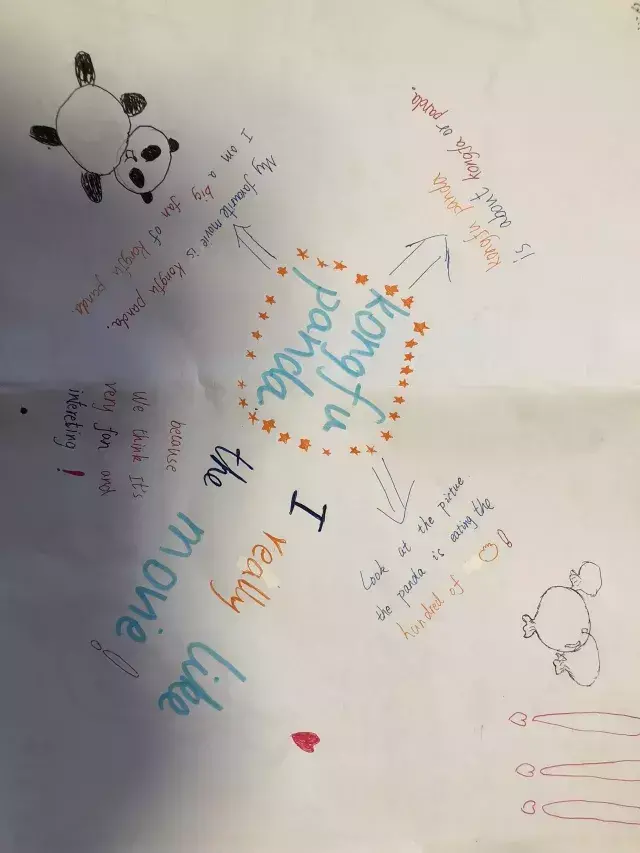 kongfu
panda
kongfu panda
Is about kongfu or panda.
My favourite movie is kongfu panda.
I am a big fan of kongfu panda.
Look at the pictue
the panda is eating the
hundred of
!
I really like
the movie!
because
We think It's
very fan and
intereting!